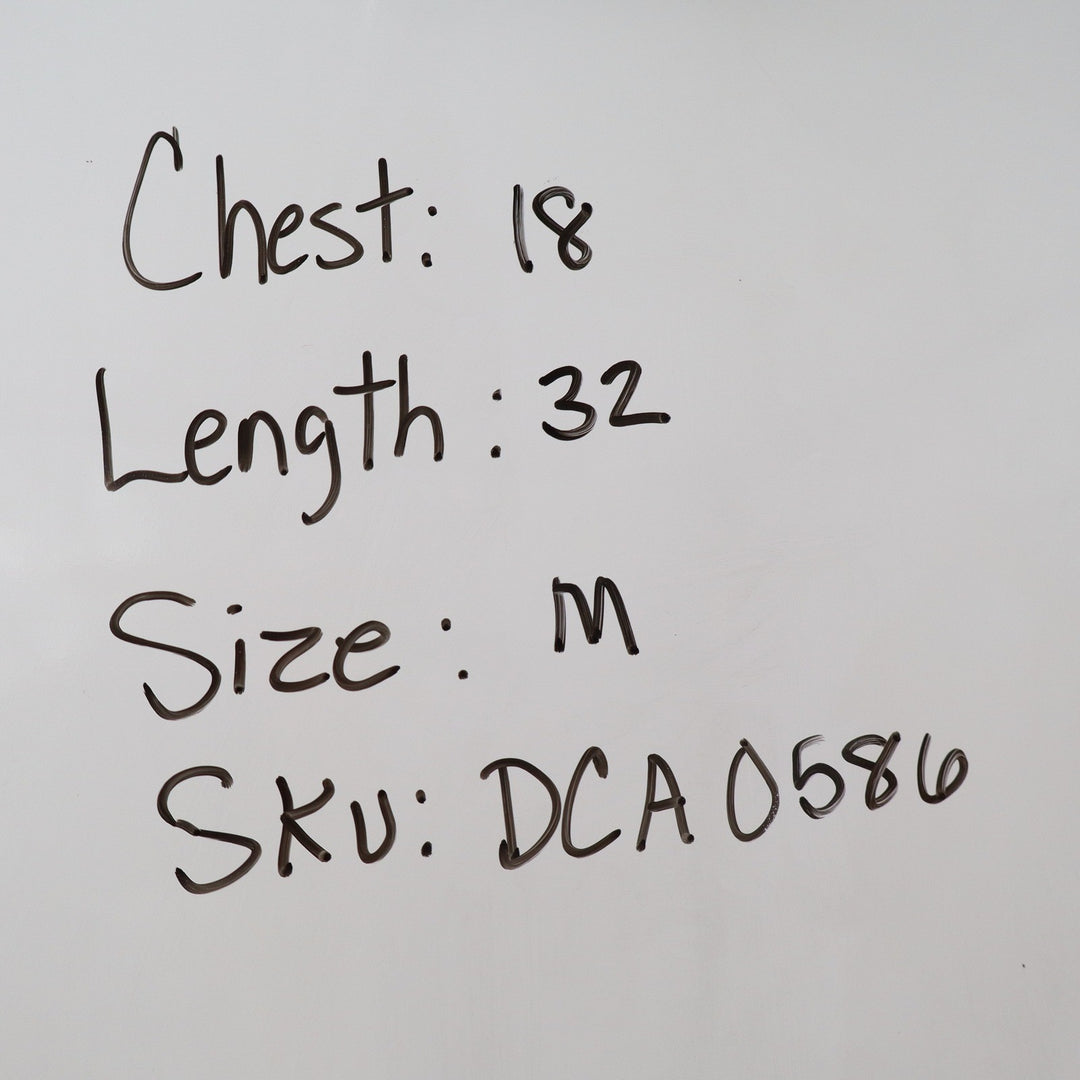 Chest: 18
Length: 32
Size: M
SKU: DCA0586